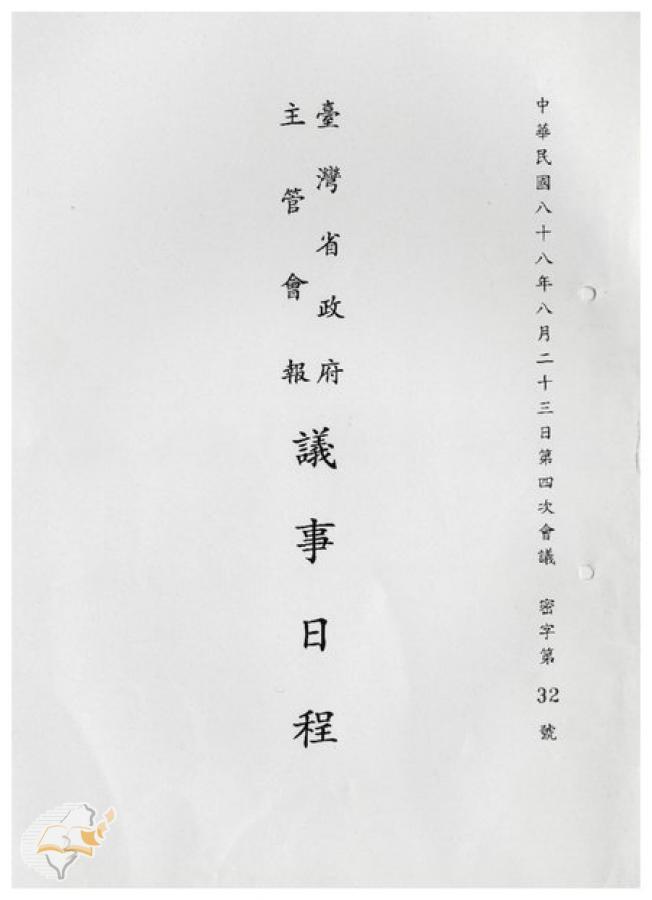 中華民國八十八年八月二十三日第四次會議 密字第32號
臺灣省政府
主管會報
議事日程